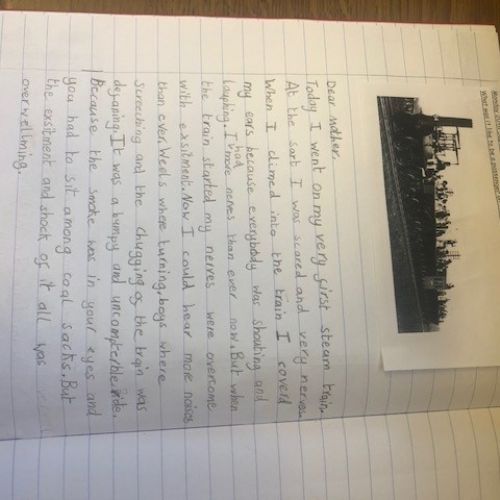 Dear Mother,
Today I went on my very first steam train.
At the sart I was scared and very nerves.
When I climed into the train I coverd
my ears because everybody was shouting and
laughing. I had more nerves than ever now. But when
the train started my nerves were overcome
with exsitment. Now I could hear more noises
than ever. Weels where turning, boys where
screeching and the chugging of the train was
defaning. It was a bumpy and uncomfterble ride.
Because the smoke was in your eyes and
you had to sit among coal sacks. But
the exsitment and shock of it all was
overwellming.
What was it like to be a passenger